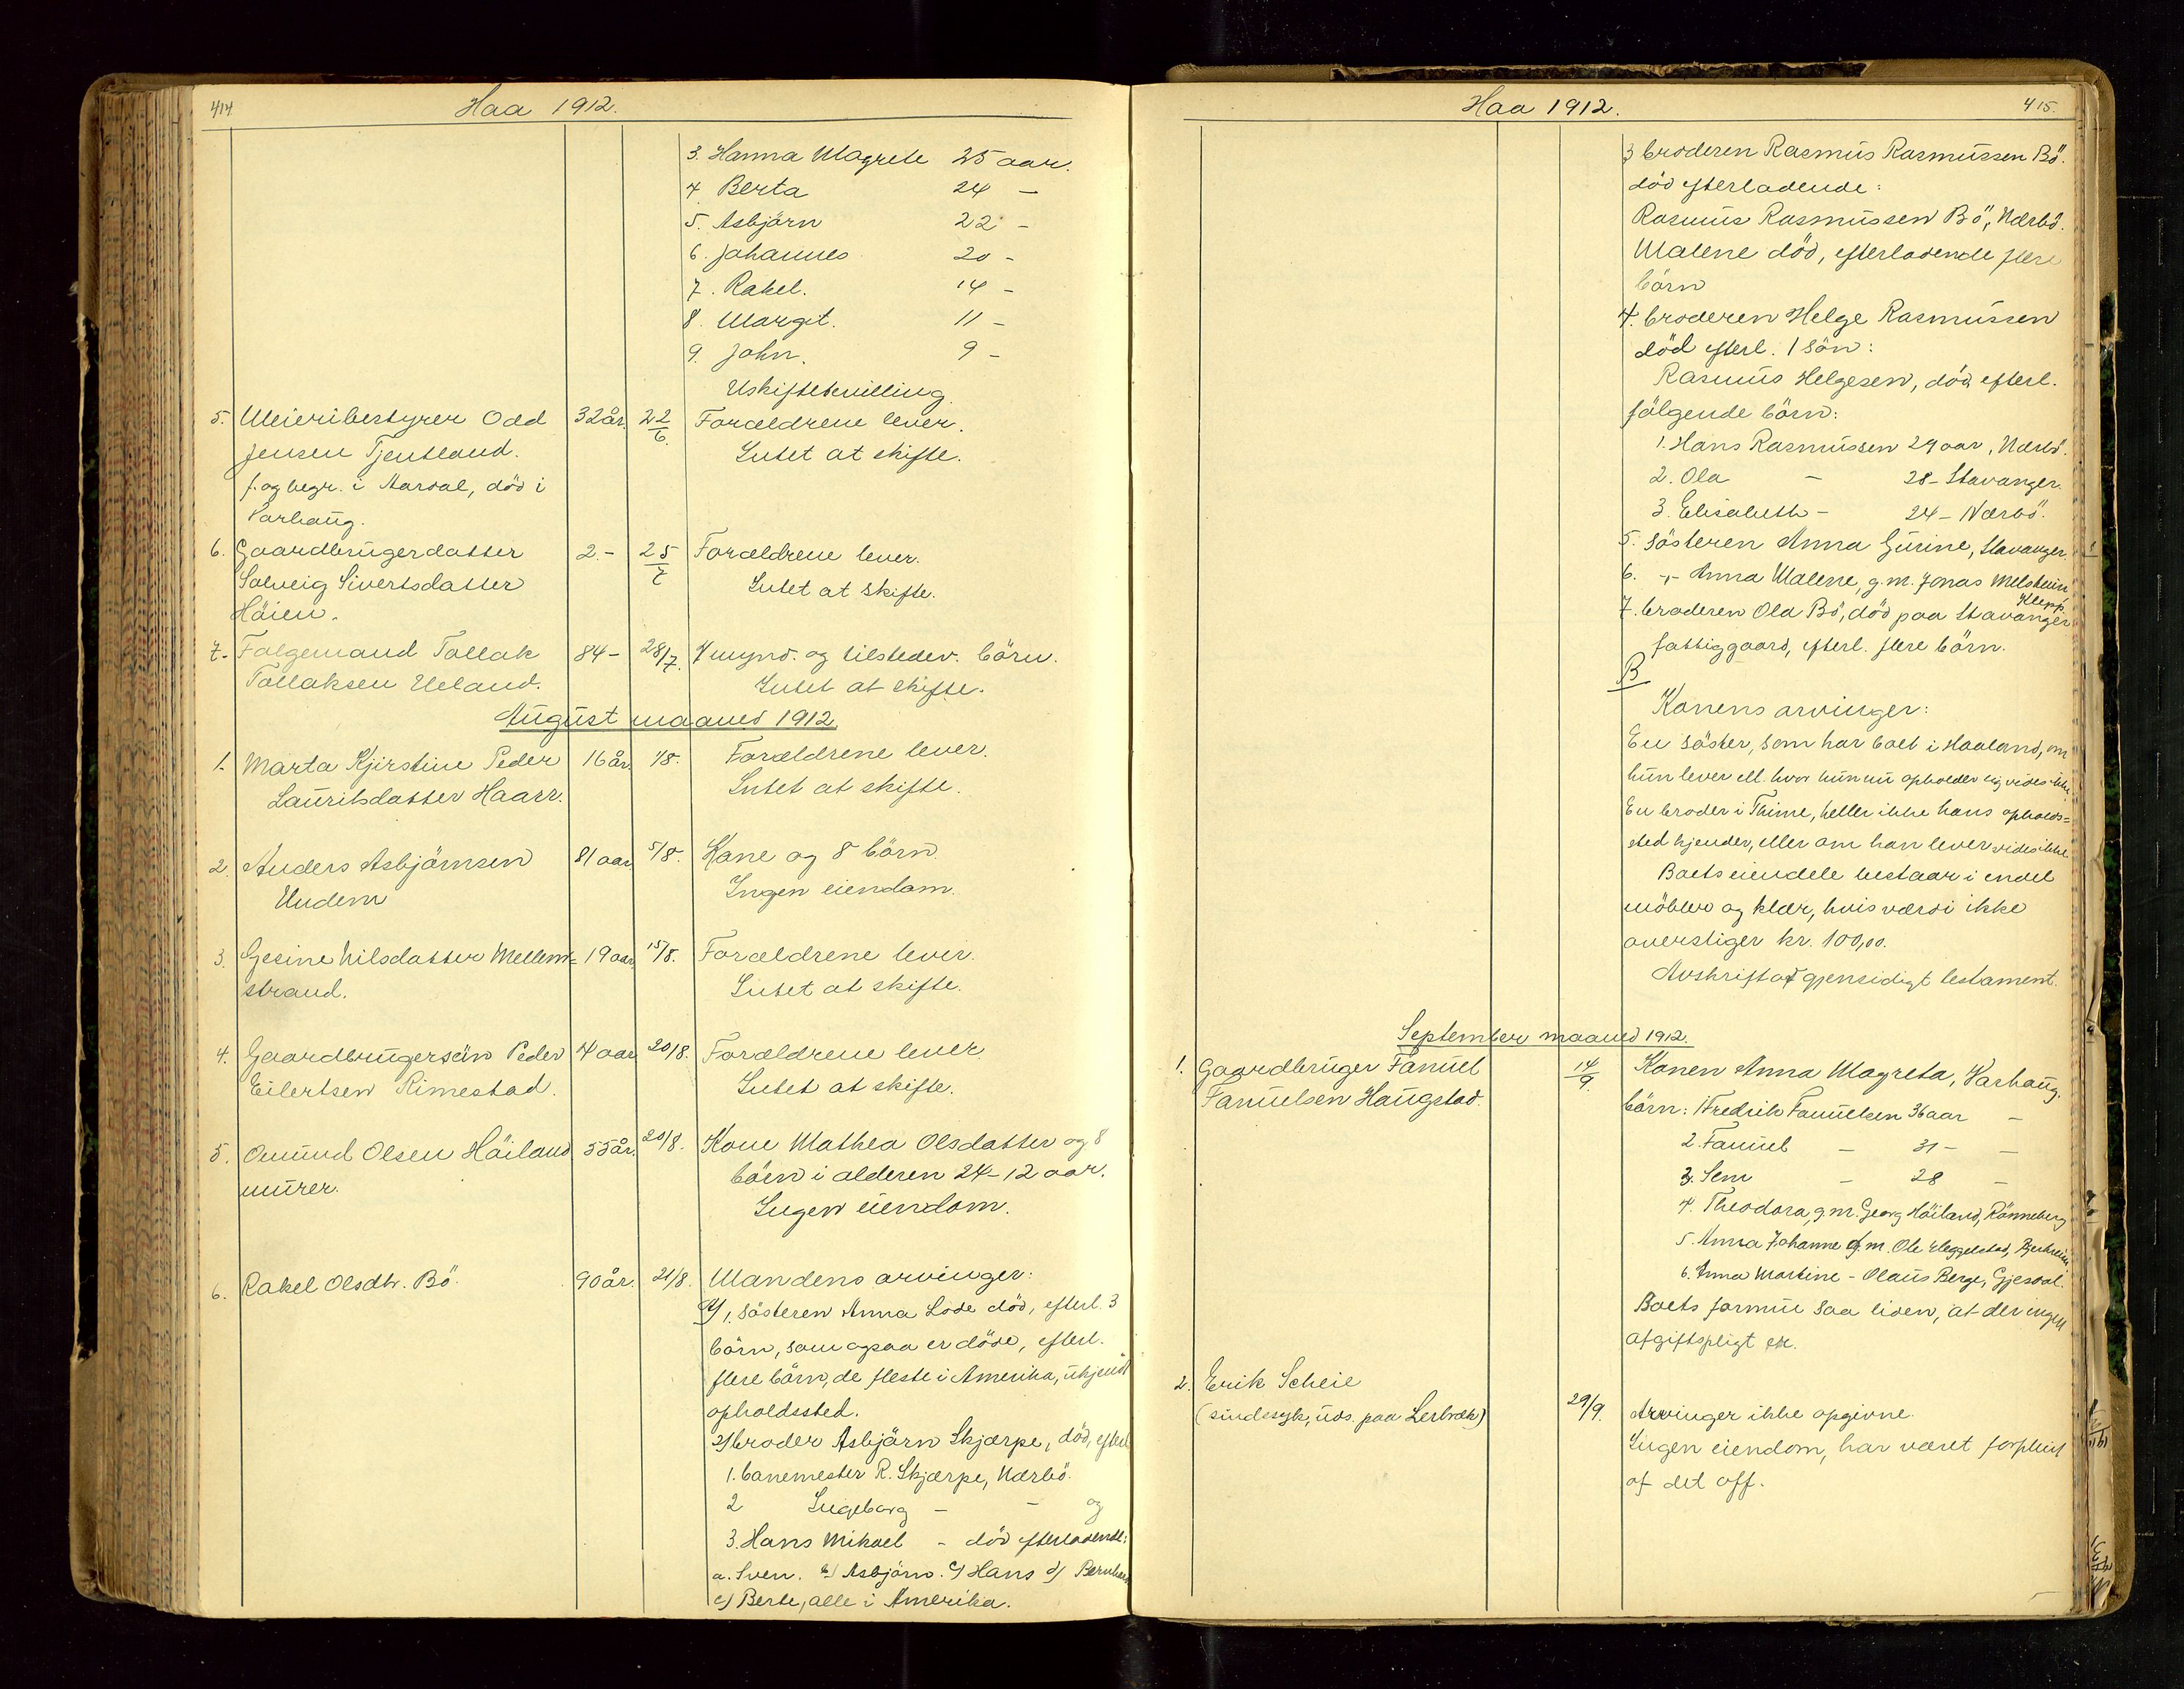 414
Haa 1912.
3. Hanna Magrete 25 aar.
4. Berta 24 —
5. Asbjörn 22 -
6. Johannes 20 -
7. Rakel. 14 -
8. Margit. 11 -
9. John. 9 -
Uskiftebevilling
5. Meieribestyrer Odd 32 år. 22/6. Forældrene lever.
Jensen Tjentland. Intet at skifte.
f. og begr. i Aardal, död i
Varhaug.
6. Gaardbrugerdatter 2.- 25/7 Forældrene lever.
Solveig Sivertsdatter Intet at skifte.
Höien.
7. Folgemand Tollak 84- 28/7. 7 mynd. og tilstedev. börn.
Tollaksen Ueland. Intet at skifte.
August maaned 1912.
1. Marta Kjirstine Peder 16 år. 1/8. Forældrene lever.
Lauritsdatter Haarr. Intet at skifte.
2. Anders Asbjörnsen 81 aar 5/8. Kone og 8 börn.
Undem Ingen eiendom.
3. Gesine Nilsdatter Mellem= 19 aar 15/8. Forældrene lever.
strand. Intet at skifte.
4. Gaardbrugersön Peder 4 aar 20/8. Forældrene lever.
Eilertsen Rimestad. Intet at skifte.
5. Omund Olsen Höiland 55 år. 20/8. Kone Mathea Olsdatter og 8
murer. börn i alderen 24-12 aar.
Ingen eiendom.
6. Rakel Olsdtr. Bö. 90 år. 21/8. Mandens arvinger:
A) 1. Sösteren Anna Lode död, efterl. 3
börn, som ogsaa er döde, efterl.
flere börn, de fleste i Amerika, ukjendt
opholdssted.
2) broder Asbjörn Skjærpe, död, efterl.
1. banemester R. Skjærpe, Nærbö.
2 Ingeborg - - og
3. Hans Mikael - död efterladende:
a. Sven. b) Asbjörn. c) Hans d) Bernhard
e) Berte, alle i Amerika.
Haa 1912.
415.
3 broderen Rasmus Rasmussen Bö.
död efterladende:
Rasmus Rasmussen Bö, Nærbö.
Malene död, efterladende flere
börn
4. broderen Helge Rasmussen
död efterl. 1 sön:
Rasmus Helgesen, död efterl.
fölgende börn:
1. Hans Rasmussen 29 aar, Nærbö.
2. Ola — 28 - Stavanger.
3. Elisabeth - 24 - Nærbö.
5. Sösteren Anna Gurine, Stavanger.
6. -,- Anna Malene, g.m. Jonas Melsheim
Klepp.
7. broderen Ola Bö, död paa Stavanger
fattiggaard, efterl. flere börn.
B
Konens arvinger:
En söster, som har boet i Haaland, om
hun lever ell. hvor hun nu opholder sig vides ikke.
En broder i Thime, heller ikke hans opholds=
sted kjender, eller om han lever vides ikke
Boets eiendele bestaar i endel
möbler og klær, hvis værdi ikke
overstiger kr. 100,00.
Avskrift af gjensidigt testament.
September maaned 1912.
1. Gaardbruger Fanuel 14/9. Konen Anna Magreta, Varhaug.
Fanuelsen Haugstad. börn: 1 Fredrik Fanuelsen 36 aar -
2. Fanuel - 31 - -
3. Sem - 28 -
4. Theodora, g.m. Georg Höiland, Rönneberg
5. Anna Johanne g.m. Ole Eleggelstad, Bjerkreim.
6. Anna Martine - Olaus Berge, Gjesdal.
Boets formue saa liden, at der ingen
afgiftspligt er.
2. Erik Scheie
(sindssyk, uds. paa Lerbræk) 29/9. Arvinger ikke opgivne.
Ingen eiendom, har været forpleiet
af det off.